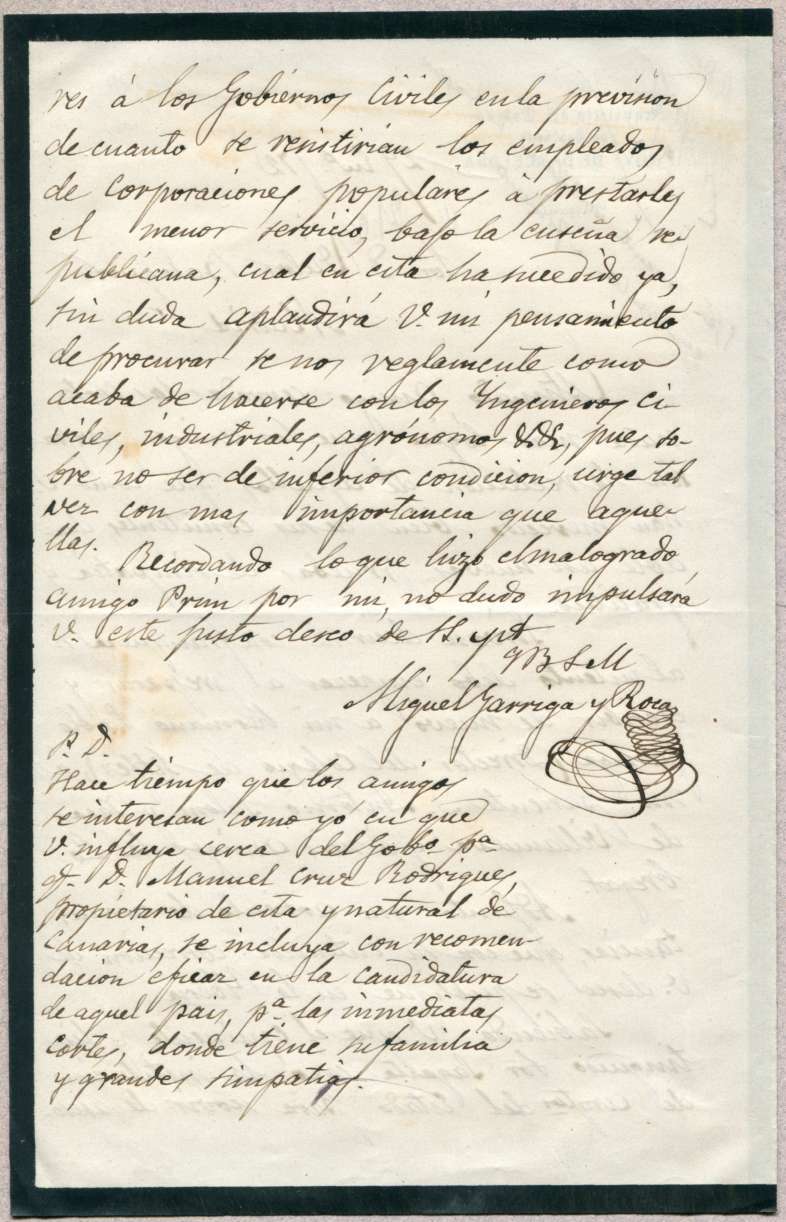 res á los Gobiernos Civiles en la prevision
de cuanto se resistirian los empleados
de Corporaciones populares á prestarles
el menor servicio, bajo la enseña re-
publicana, cual en esta ha sucedido ya,
sin duda aplaudirá V. mi pensamiento
de procurar se nos reglamente como
acaba de hacerse con los Yngenieros Ci-
viles, industriales, agrónomos &&&, pues so-
bre no ser de inferior condicion, urge tal
vez con mas importancia que aque-
llas.
Recordando lo que hizo el malogrado
amigo Prim por mi, no dudo impulsará
V. este justo deseo de S.
q B S M
Miguel Garriga y Roca
P. D.
Hace tiempo que los amigos
se interesan como yó en que
V. influya cerca del Gobo. pa.
q. D. Manuel Cruz Rodrigues,
propietario de esta y natural de
Canarias, se incluya con recomen-
dacion eficaz en la candidatura
de aquel pais, pa. las inmediatas
Cortes, donde tiene su familia
y grandes simpatias.